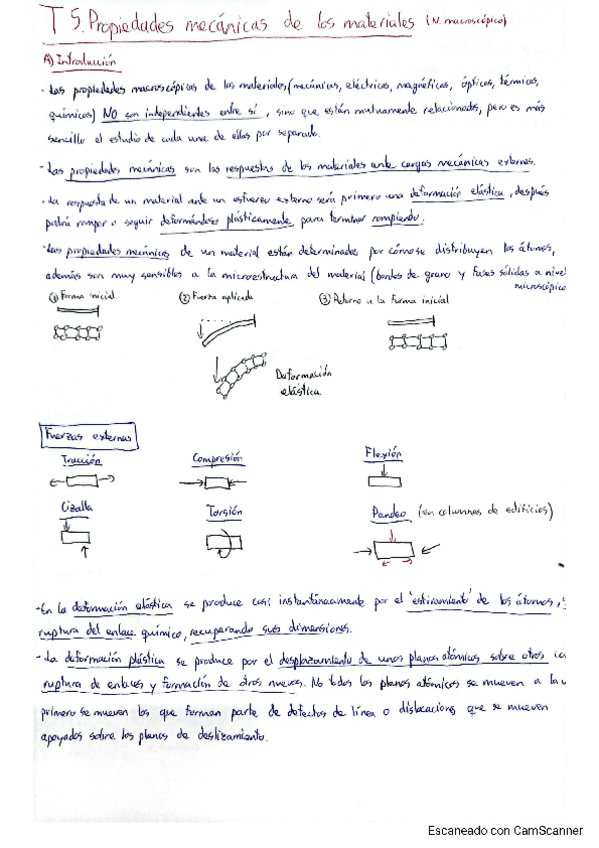 T 5. Propiedades mecánicas de los materiales (N. macroscópico)
A) Introducción
- Las propiedades macroscópicas de los materiales (mecánicas, eléctricas, magnéticas, ópticas, térmicas,
químicas) NO son independientes entre sí, sino que están mutuamente relacionadas, pero es más
sencillo el estudio de cada una de ellas por separado.
- Las propiedades mecánicas son las respuestas de los materiales ante cargas mecánicas externas.
- La respuesta de un material ante un esfuerzo externo será primero una deformación elástica, después
podrá romper o seguir deformándose plásticamente para terminar rompiendo.
- Las propiedades mecánicas de un material están determinadas por cómo se distribuyen los átomos,
además son muy sensibles a la microestructura del material (bordes de grano y fases sólidas a nivel
microscópico
① Forma inicial ② Fuerza aplicada ③ Retorno a la forma inicial
Deformación
elástica
Fuerzas externas
Tracción Compresión Flexión
Cizalla Torsión Pandeo (en columnas de edificios)
- En la deformación elástica se produce casi instantáneamente por el 'estiramiento' de los átomos,
ruptura del enlace químico, recuperando sus dimensiones.
- La deformación plástica se produce por el desplazamiento de unos planos atómicos sobre otros
ruptura de enlaces y formación de otros nuevos. No todos los planos atómicos se mueven a la
primero se mueven los que forman parte de defectos de línea o dislocaciones que se mueven
apoyados sobre los planos de deslizamiento.
Escaneado con CamScanner